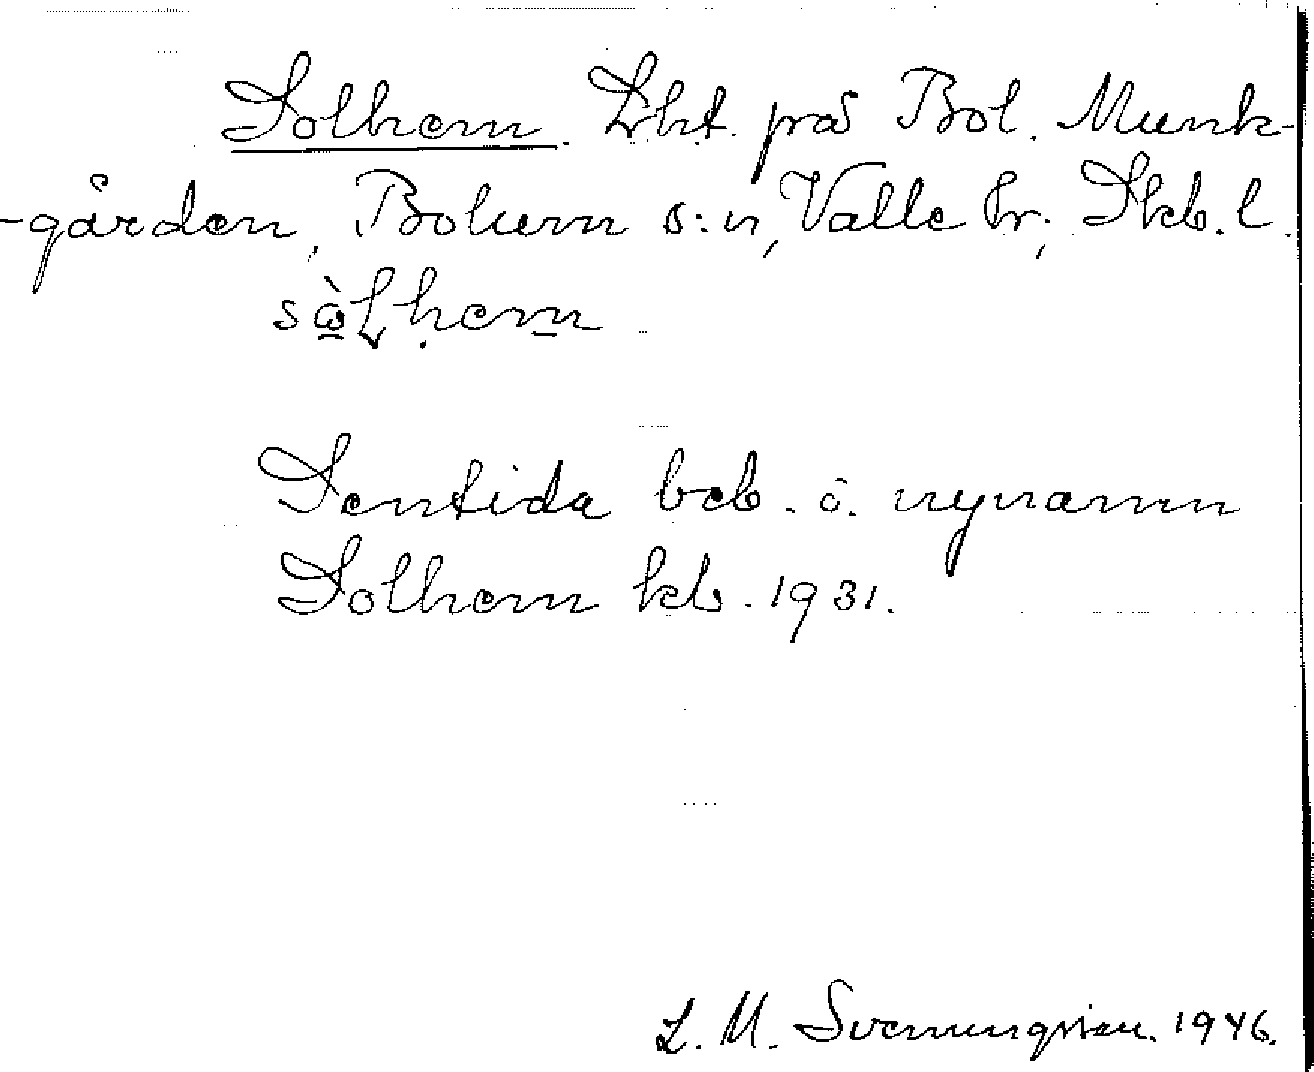 Solhem. Lht. på Bol. Munk-
-gården, Bolum s:n, Valle hr, Skb. l.
Sentida beb. o. nynamn
Solhem kb. 1931.
L. M. Svenungsson. 1946.